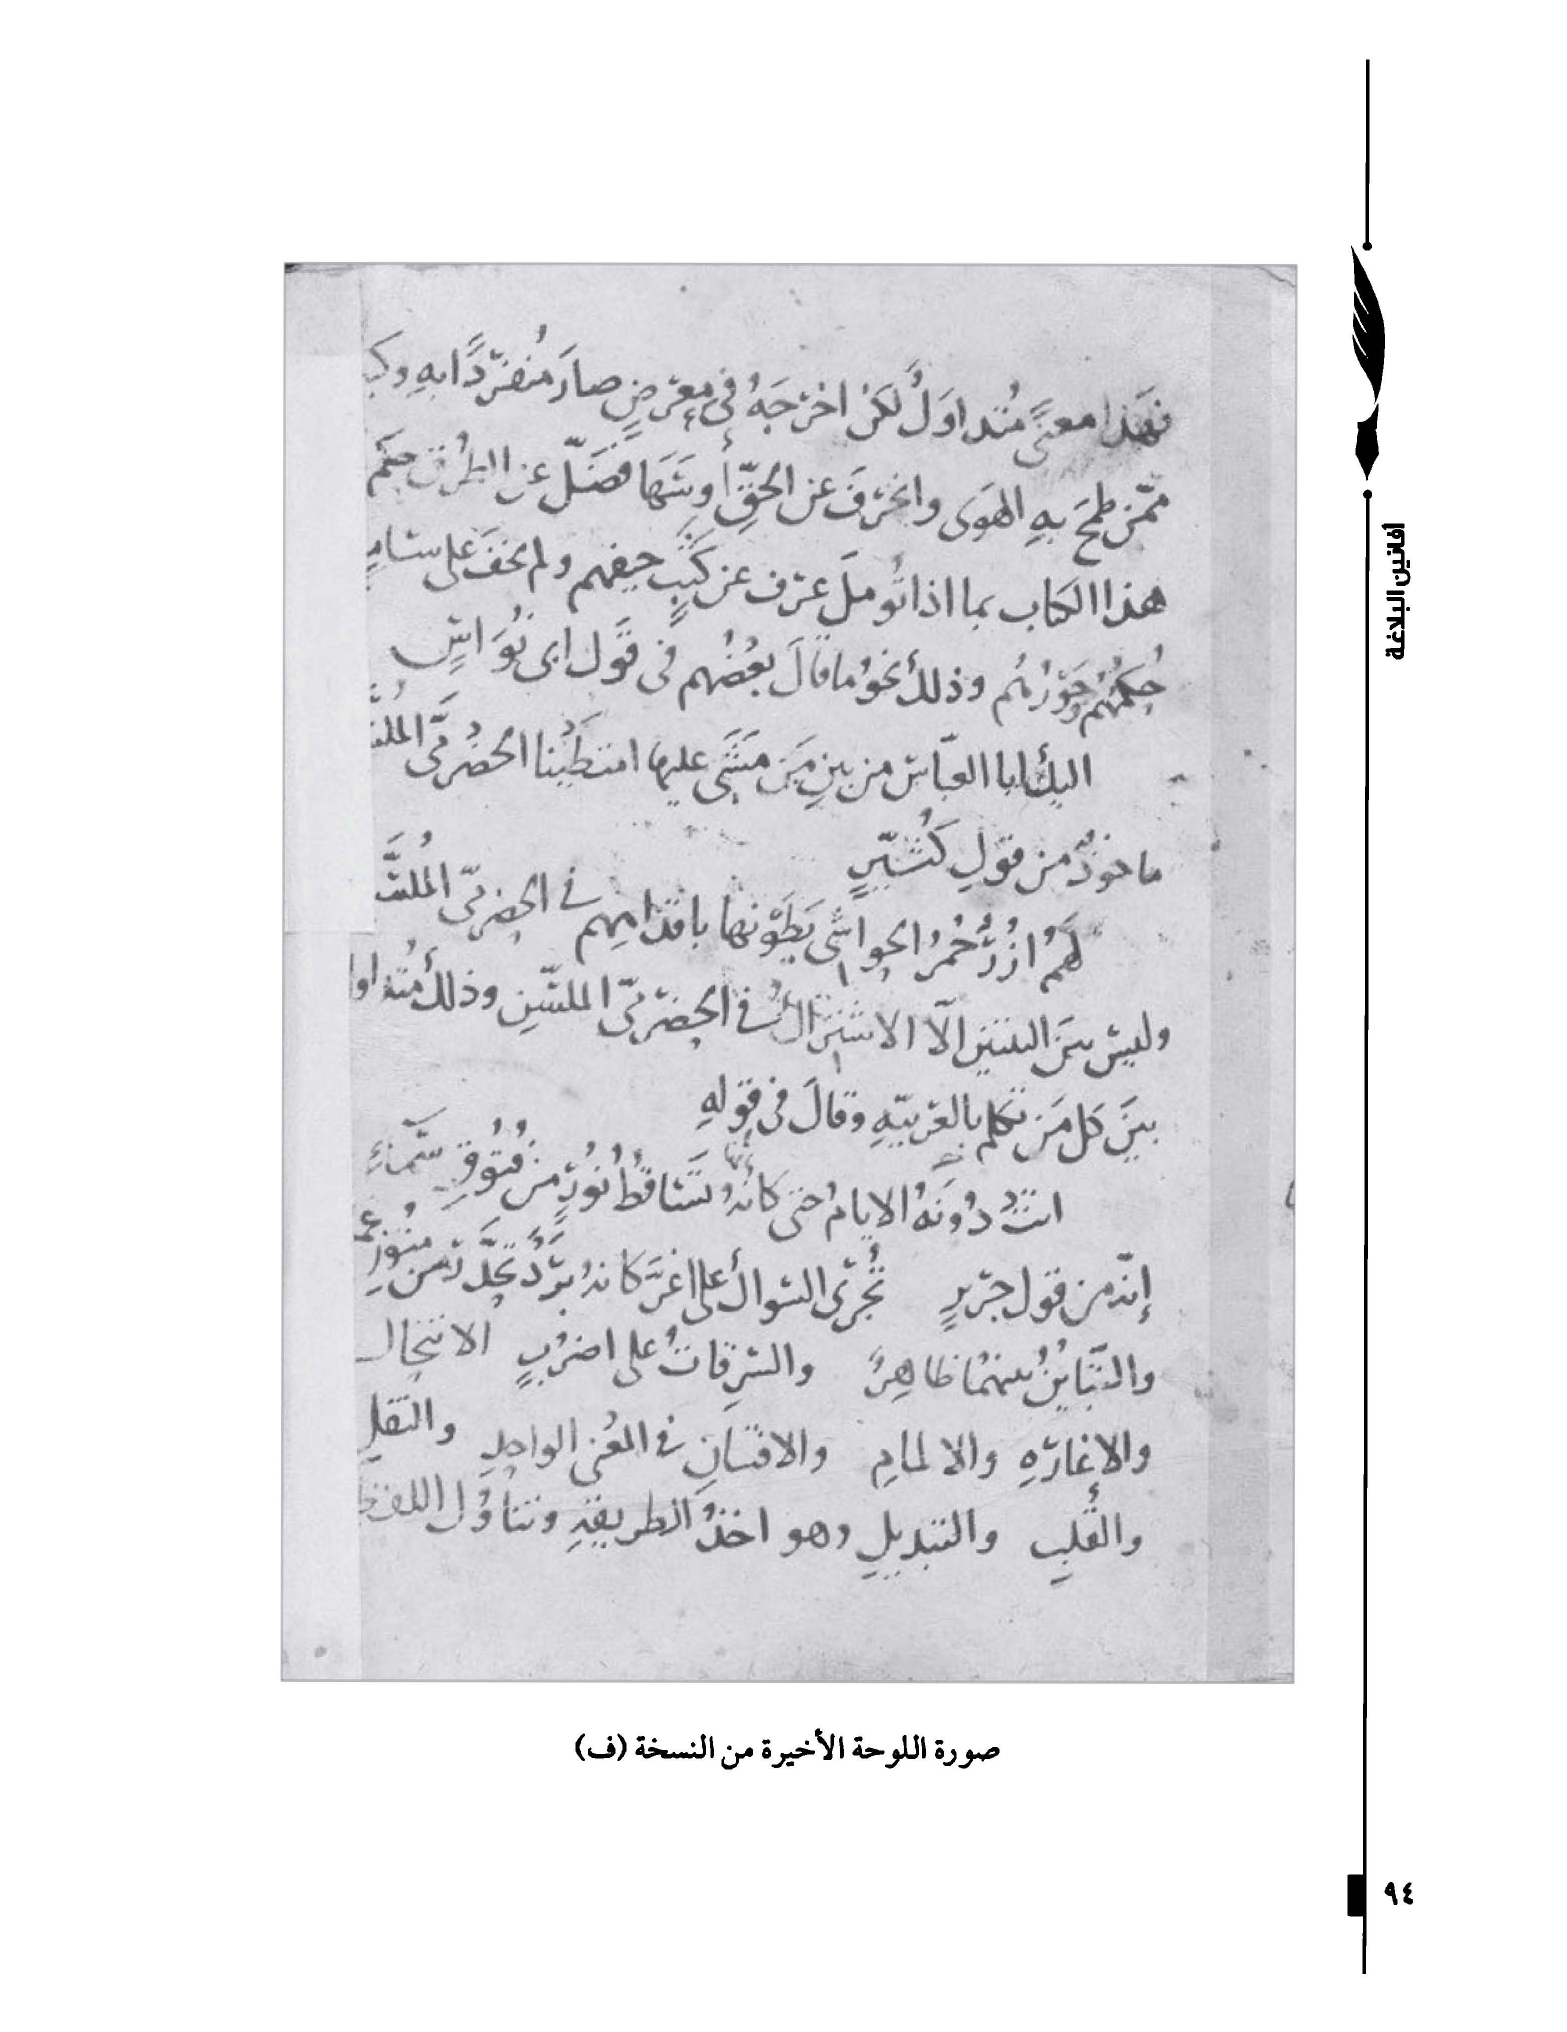 فهَذا معنًى مُتداوَلٌ لكن اخرَجَهُ في مِعرَضٍ صارَ مُنفرِدًا بهِ
ممّن طمحَ بهِ الهوَى وانحرَفَ عن الحقِّ أو سَهَا فضَلّ عن الطرُق
هذا الكتاب بما اذا تُومِلَ عرف عن كَثَبٍ حيفهم ولم يخفَ على
حُكمُهُم وجَوْرُهُم وذلك نحوُ ما قالَ بعضُهُم في قَول ابى نُوَاسٍ
اليك ابا العبّاس من بينِ مَن مَشَى عليها امتطَينا الحضرَميَّ
ماخوذٌ من قولِ كُثيّرٍ
لَهُم اُزُرٌ حُمرُ الحواشى يَطَؤنَها باقدامِهم في الحضرَميّ
وليسَ بينَ البيتينِ الّا الاشتراكُ في الحضرَميّ الملسّنِ وذلك
بينَ كل مَن تكلم بالعَربيّهِ وقالَ في قولهِ
اتت دُونَهُ الايامُ حتى كانهُ تَسَاقطُ نُورٍ من فُتُوقِ سَمَاءِ
إنّه من قول جَريرٍ تُجرِى السّواكَ على اغرَّ كانه بَرَدٌ تَحَدَّرَ من مُتُونِ
والتّبَايُنُ بينهُمَا ظاهِرٌ والسَّرِقاتُ على اضرُبٍ الانتِحال
والاغارَهِ والالمامِ والافتنانِ في المعنى الواحدِ والنّقلِ
والقَلبِ والتبديلِ وهو اخذُ الطريقةِ وتناوُل اللفظ
صورة اللوحة الأخيرة من النسخة (ف)
أفانين البلاغة
٩٤